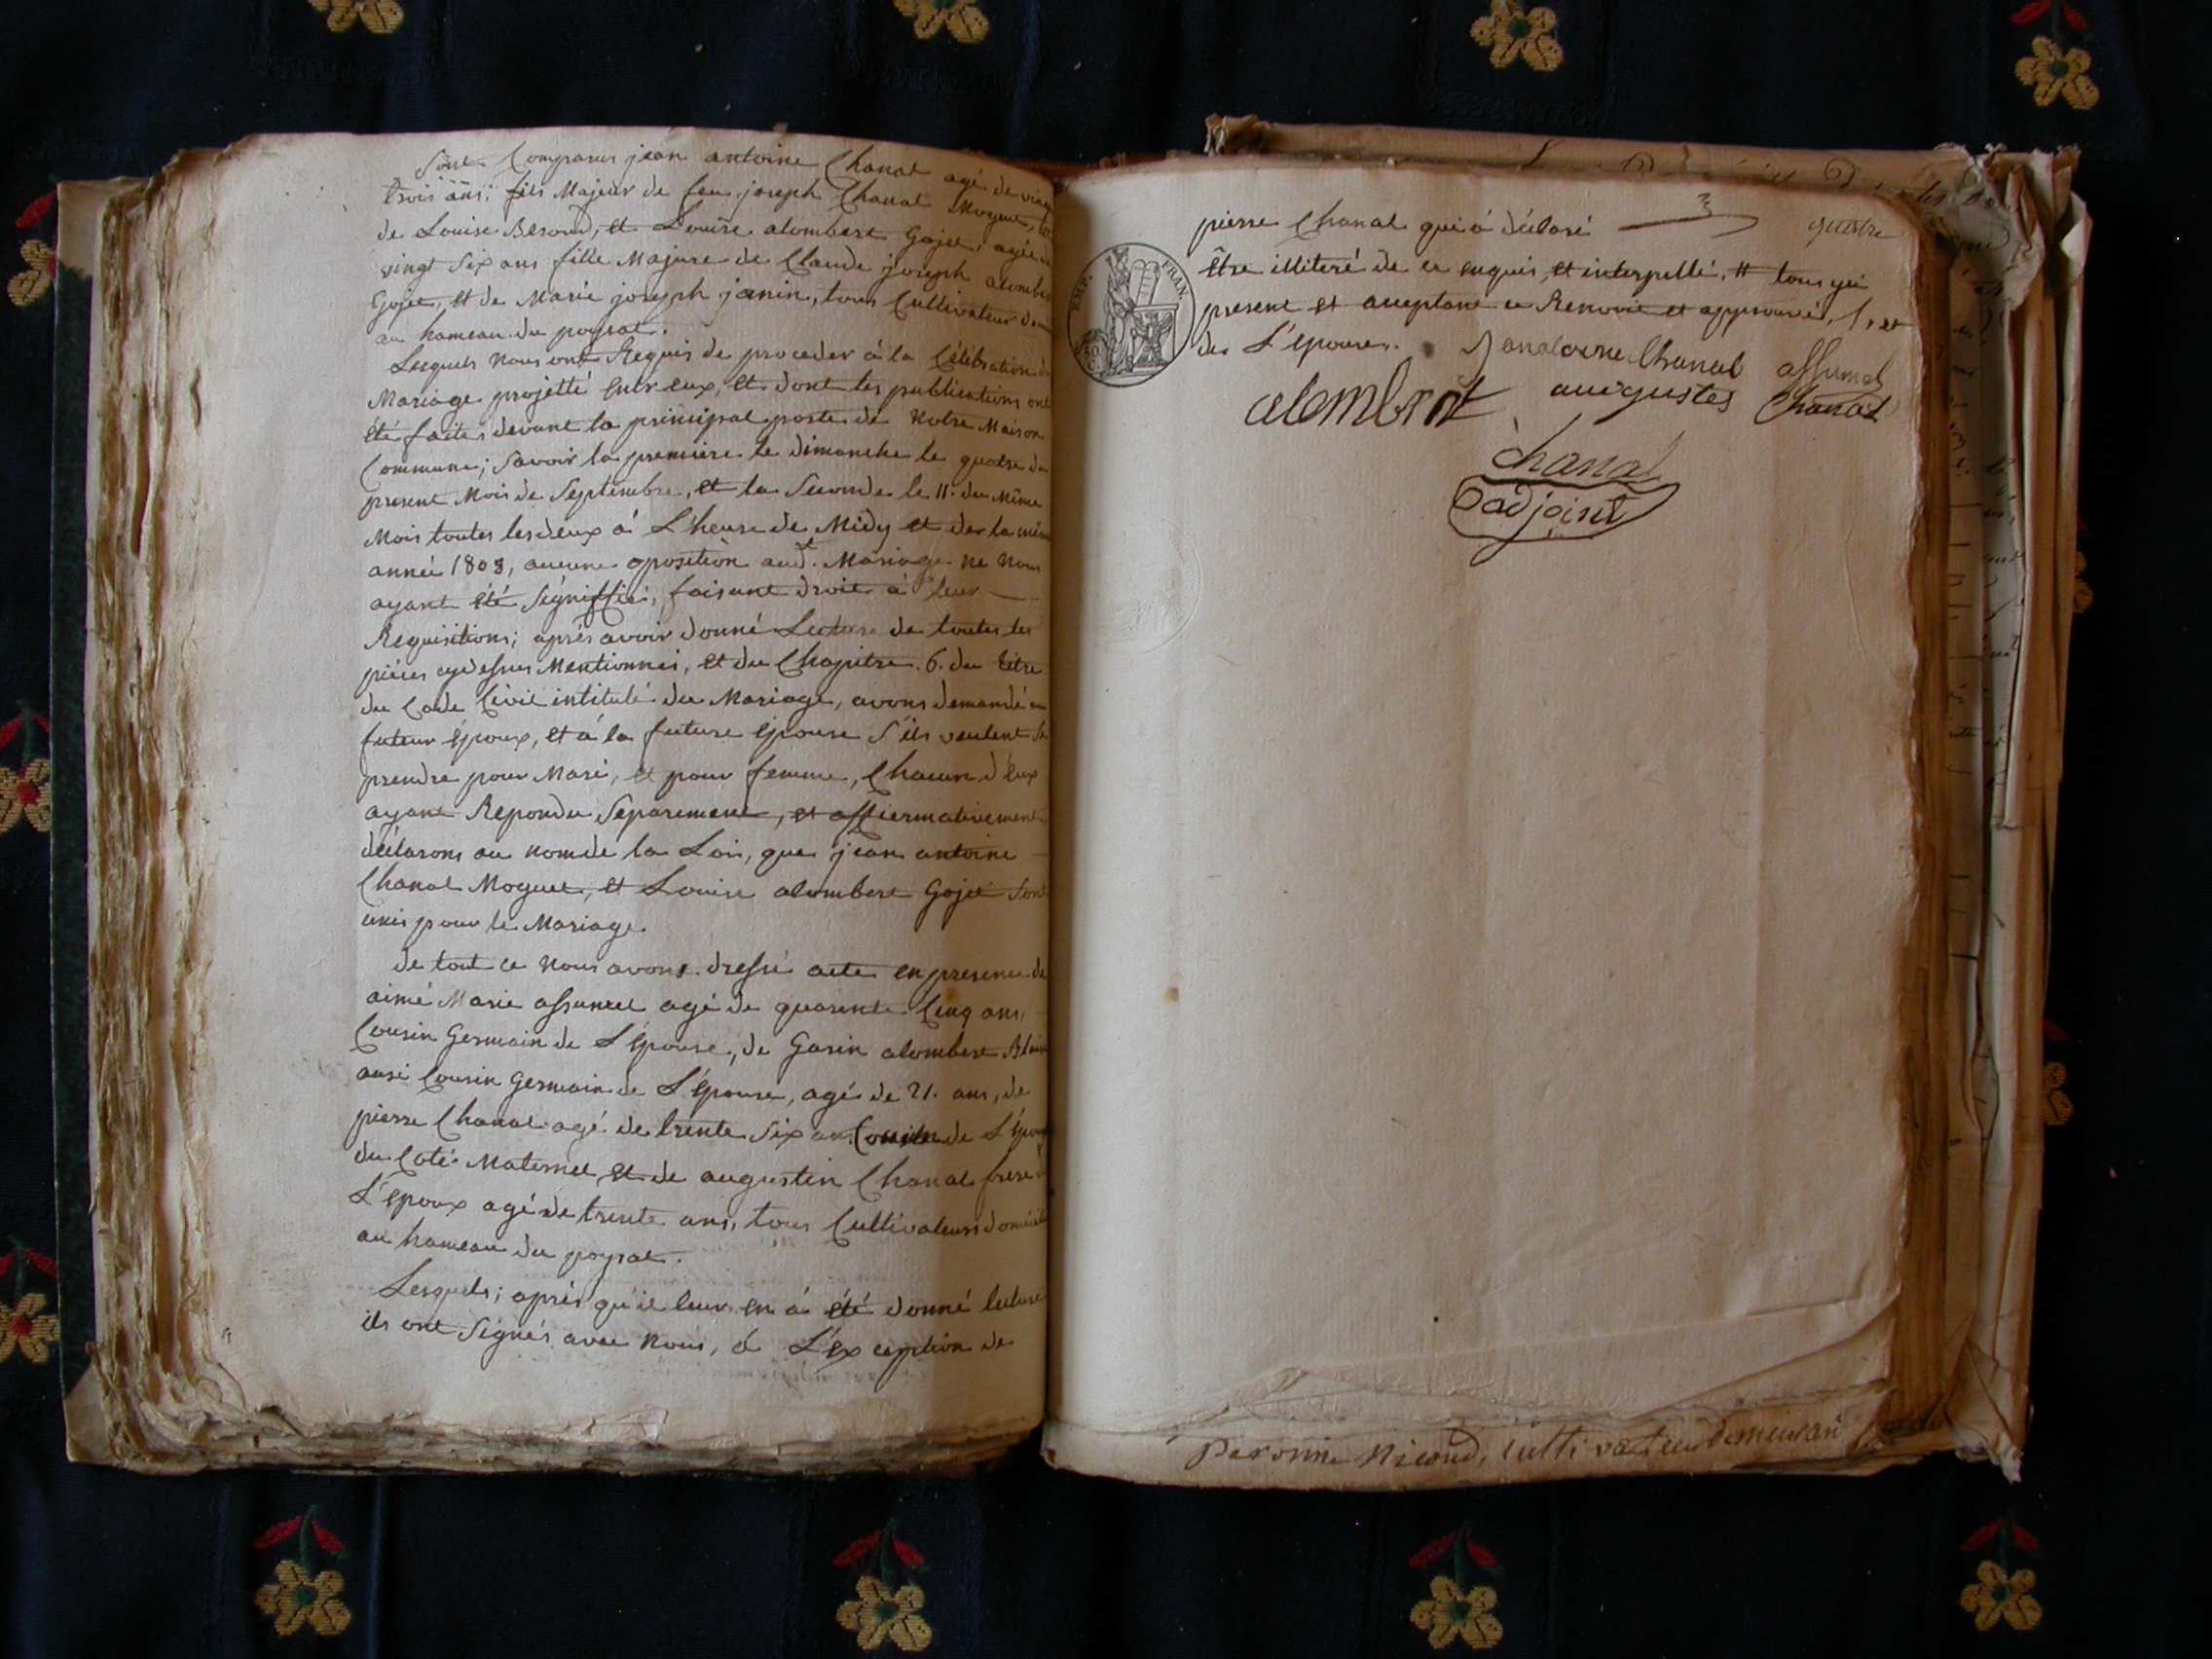 Sont Comparus jean antoine Chanal agé de vingt
trois ans; fils Majeur de feu joseph Chanal Moguet,
de Louise Beroud, et Louise alombert Gojet, agée de
vingt six ans fille Majure de Claude joseph alombert
Gojet, et de Marie joseph janin, tous Cultivateur
au hameau du poysat.
Lesquels nous ont Requis de proceder à la Célébration du
Mariage projetté entr'eux, et dont les publications ont
été faites devant la principal porte de Notre Maison
Commune; Savoir la premiere le dimanche le quatre du
present Mois de Septembre, et la Seconde le 11. du Même
Mois toutes les deux à L'heure de Midy et de la même
année 1808, aucune oposition aud. Mariage ne Nous
ayant été Signiffiée, faisant droit à leur
Requisitions; après avoir donné Lecture de toutes les
piéces cydessus Mentionnés, et du Chapitre. 6. du titre
du Code Civil intitulé du Mariage, avons demandé au
futeur époux, et à la future épouse S'ils veulent Se
prendre pour Mari, et pour femme, Chacun d'eux
ayant Repondu Separement, et affiermativement
déclarons au nom de la Loi, que jean antoine
Chanal Moguet, et Louise alombert Gojet Sont
unis pour le Mariage.
De tout ce Nous avons dressé acte en presence de
aimé Marie assumel agé de quarente Cinq ans,
Cousin Germain de L'épouse, de Garin alombert
ausi Cousin Germain de L'épouse, agé de 21. ans, de
pierre Chanal agé de trente Six ans Cousin de L'époux
du Coté Maternel, et de augustin Chanal frere
L'époux agé de trente ans, tous Cultivateurs
au hameau du poysat.
Lesquels; après qu'il leur en à été donné lecture
ils ont Signés avec Nous, à L'exception de
3
quatre
pierre Chanal qui à déclaré
être illiteré de ce enquis, et interpellé. tous
present et aceptant ce Renvoie et approuvé,
des L'épouse.
EMP. FRAN.
Chanal
assumel
alombert
augustes
Chanal
Chanal
adjoint
cultivateur demeurant